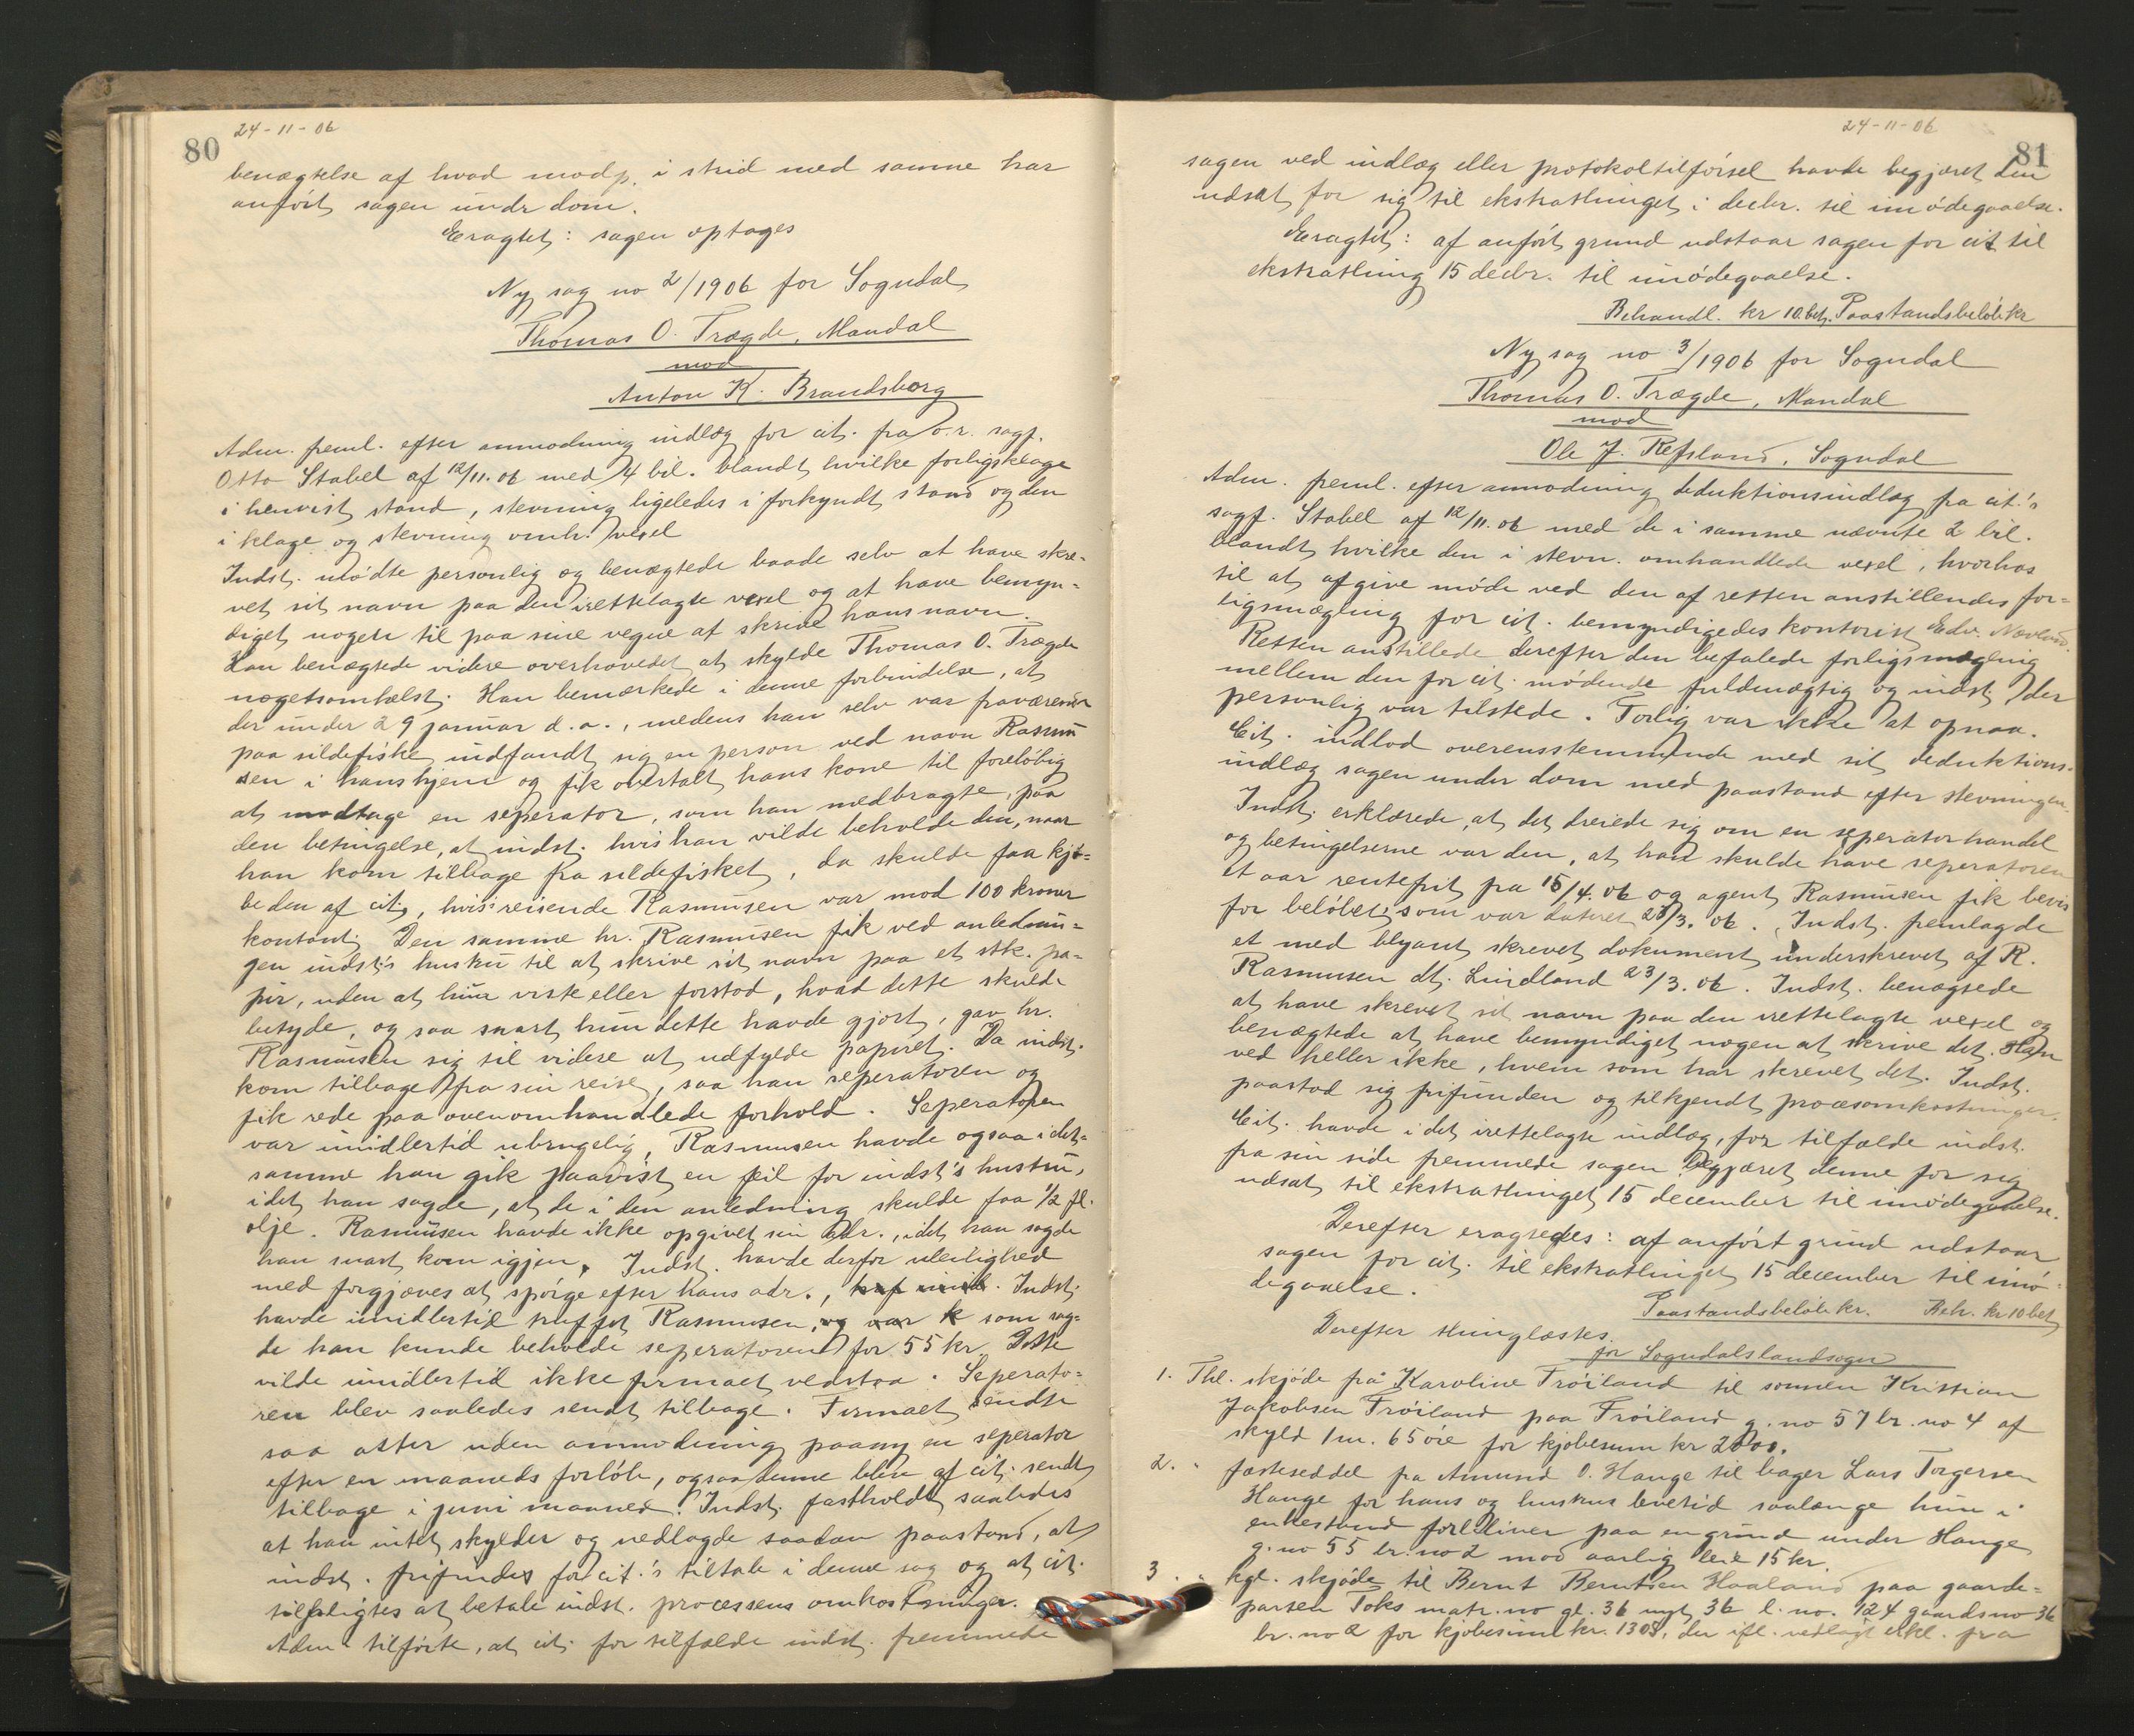 80
24-11-06
benægtelse af hvad modp. i strid med samme har
anført sagen undr dom.
Eragtet: sagen optages
Ny sag no 2/1906 for Sogndal
Thomas O. Trægde, Mandal
mod
Anton K. Brandsberg
Adm. freml. efter anmodning indlæg for cit. fra o.r. sagf.
Otto Stabel af 12/11.06 med 4 bil. blandt hvilke forligsklage
i henvist stand, stevning ligeledes i forkyndt stand og den
i klage og stevning omh. vexel
Indst. mødte personlig og benægtede baade selv at have skre-
vet sit navn paa den irettelagte vexel og at have bemyn-
diget nogen til paa sine vegne at skrive hans navn.
Han benægtede videre overhovedet at skylde Thomas O. Trægde
nogetsomhelst. Han bemærkede i denne forbindelse, at
der under 29 januar d.a., medens han selv var fraværende
paa sildefiske indfandt sig en person ved navn Rasmu
sen i hans hjem og fik overtalt hans kone til foreløbig
at modtage en seperator, som han medbragte, paa
den betingelse, at indst. hvis han vilde beholde den, naar
han kom tilbage fra sildefisket, da skulde faa kjø-
be den af cit., hvis reisende Rasmusen var mod 100 kroner
kontant. Den samme hr. Rasmusen fik ved anlednin-
gen indst.'s hustru til at skrive sit navn paa et stk. pa-
pir, uden at hun viste eller forstod, hvad dette skulde
betyde, og saa snart hun dette havde gjort, gav hr.
Rasmusen sig til videre at udfylde papiret. Da indst.
kom tilbage fra sin reise, saa han seperatoren og
fik rede paa ovenomhandlede forhold. Seperatoren
var imidlertid ubrugelig, Rasmusen havde ogsaa i det-
samme han gik paavist en feil for indst's hustru,
idet han sagde, at de i den anledning skulde faa 1/2 fl.
olje. Rasmusen havde ikke opgivet sin adr., idet han sagde
han snart kom igjen. Indst. havde derfor uleilighed
med forgjæves at spørge efter hans adr., Indst.
havde imidlertid truffet Rasmusen, og var k som sag-
de han kunde beholde seperatoren for 55 kr. Dette
vilde imidlertid ikke firmaet vedstaa. Seperato-
ren blev saaledes sendt tilbage. Firmaet sendte
saa atter uden anmodning paany en seperator
efter en maaneds forløb, ogsaa denne blev af cit. sendt
tilbage i juni maaned. Indst. fastholdt saaledes
at han intet skylder og nedlagde saadan paastand, at
indst. frifindes for cit.'s tiltale i denne sag og at cit.
tilpligtes at betale indst. processens omkostninger.
Adm. tilførte, at cit. for tilfælde indst. fremmede
24-11-06
81
sagen ved indlæg eller protokoltilførsel havde begjæret den
udsat for sig til ekstrathinget i decbr. til imødegaaelse.
Eragtet: af anført grund udstaar sagen for cit til
ekstrathing 15 decbr. til imødegaaelse.
Behandl. kr 10.bet. Paastandsbeløb kr
Ny sag no 3/1906 for Sogndal
Thomas O. Trægde, Mandal
mod
Ole J. Refsland, Sogndal
Adm. freml. efter anmodning deduktionsindlæg fra cit.'s
sagf. Stabel af 12/11.06 med de i samme nævnte 2 bil.
blandt hvilke den i stevn. omhandlede vexel, hvorhos
til at afgive møde ved den af retten anstillendes for-
ligsmægling for cit. bemyndigedes kontorist Edv. Nævland.
Retten anstillede derefter den befalede forligsmægling
mellem den for cit. mødende fuldmægtig og indst. der
personlig var tilstede. Forlig var ikke at opnaa.
Cit. indlod overensstemmende med sit deduktions-
indlæg sagen under dom med paastand efter stevningen.
Indst. erklærede, at det dreiede sig om en seperatorhandel
og betingelserne var den, at han skulde have seperatoren
et aar rentefrit fra 15/4.06 og agent Rasmusen fik bevis
for beløbet, som var dateret 23/3.06. Indst. fremlagde
et med blyant skrevet dokument underskrevet af R.
Rasmusen dt. Lindland 23/3.06. Indst. benægtede
at have skrevet sit navn paa den irettelagte vexel og
benægtede at have bemyndiget nogen at skrive det. Han
ved heller ikke, hvem som har skrevet det. Indst.
paastod sig frifunden og tilkjendt procesomkostninger.
Cit. havde i det irettelagte indlæg, for tilfælde indst.
fra sin side fremmede sagen begjæret denne for sig
udsat til ekstrathinget 15 december til imødegaaelse.
Derefter eragtedes: af anført grund udstaar
sagen for cit. til ekstrathinget 15 december til imø-
degaaelse.
Paastandsbeløb kr. Beh. kr 10 bet
Derefter thinglæstes.
for Sogndals landsogn
1. Thl. skjøde fra Karoline Frøiland til sønnen Kristian
Jakobsen Frøiland paa Frøiland g.no 57 br.no 4 af
skyld 1 m. 65 øre for kjøbesum kr 2000.
2. " fæsteseddel fra Amund O. Hauge til bager Lars Torgersen
Hauge for hans og hustrus levetid saalænge hun i
enkestand forbliver paa en grund under Hauge
g.no 55 br.no 2 mod aarlig leie 15 kr.
3. " kgl. skjøde til Bernt Berntsen Haaland paa gaarde-
parten Toks matr.no gl. 36 nyt 36 l.no. 124 gaardsno 36
br.no 2 for kjøbesum kr. 1308, der ifl. vedlagt erkl. fra